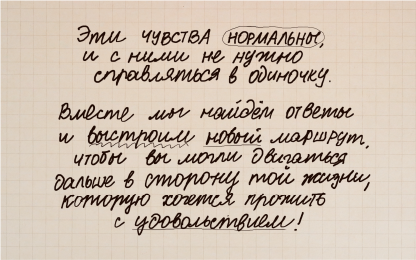 Эти чувства нормальны,
и с ними не нужно
справляться в одиночку.
Вместе мы найдём ответы
и выстроим новый маршрут,
чтобы вы могли двигаться
дальше в сторону той жизни,
которую хочется прожить
с удовольствием!